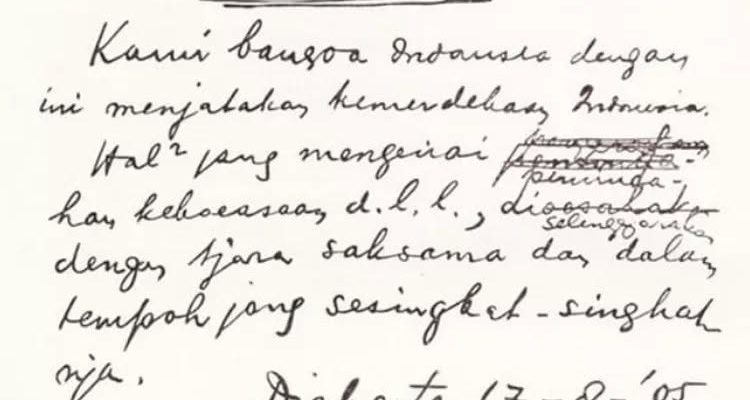 Kami bangsa Indonesia dengan
ini menjatakan kemerdekaan Indonesia.
Hal² jang mengenai
peminda-
han kekoeasaan d.l.l., dioesahakan
selenggarakan
dengan tjara saksama dan dalam
tempoh jang sesingkat-singkat
nja.
Djakarta 17-8-'05